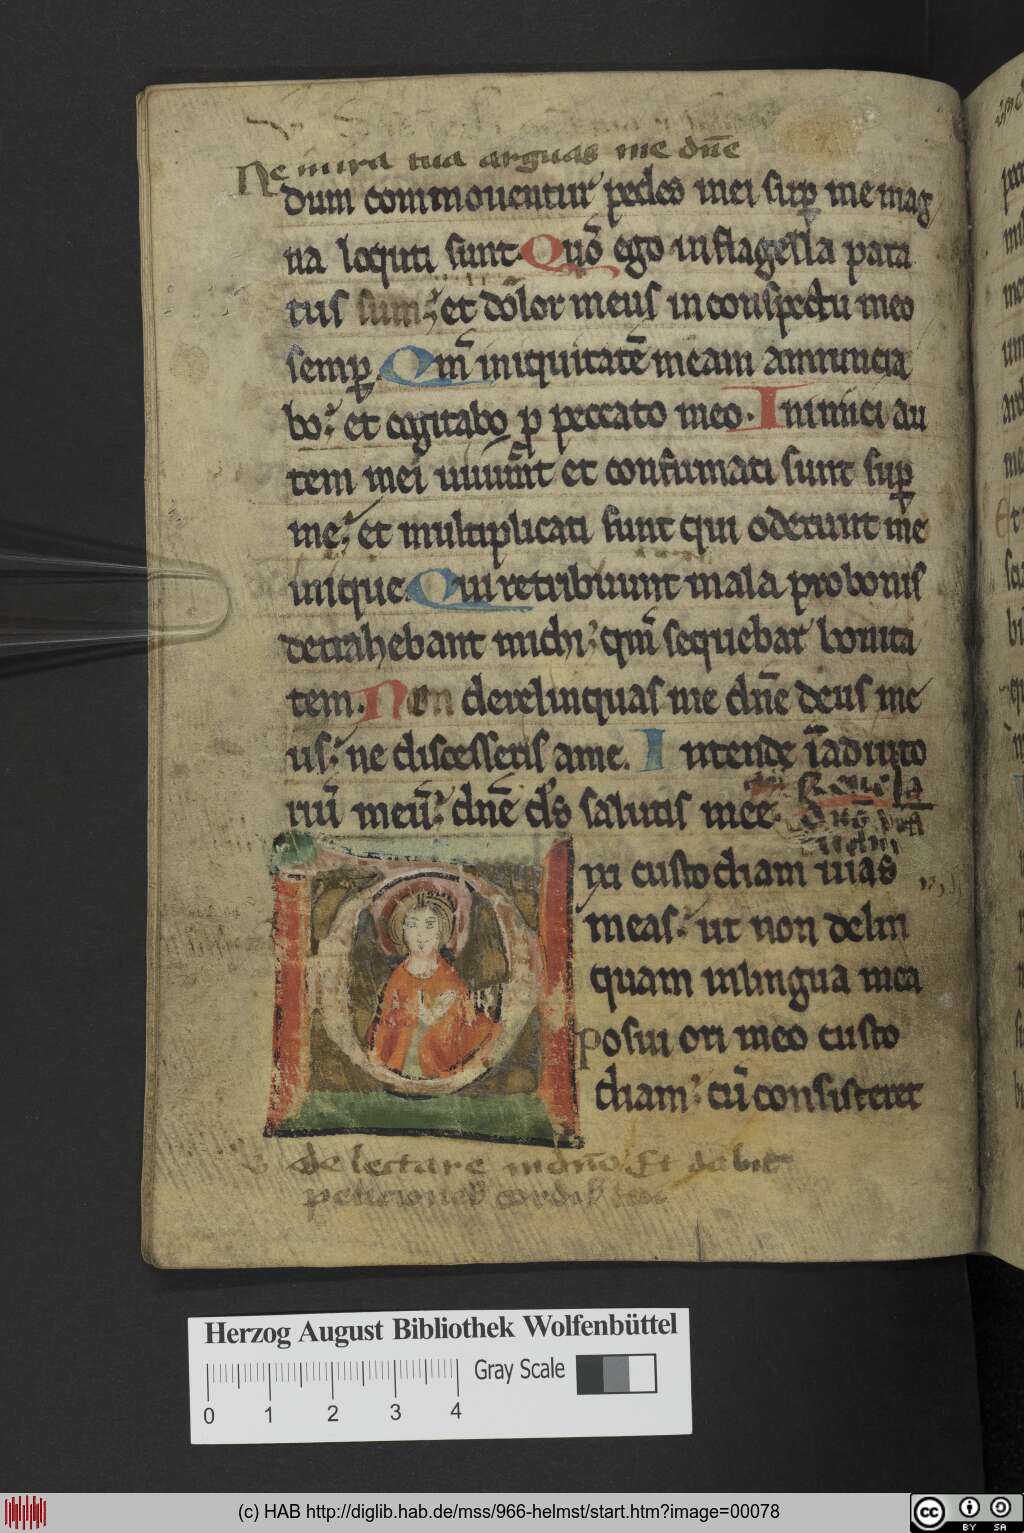 Ne in ira tua arguas me dn̄e
dum commouentur pedes mei sup̱ me mag
na locuti sunt. Quō ego in flagella para
tus sum; et dolor meus in conspectu meo
semp̱. Qm̄ iniquitatē meam annuncia
bo; et cogitabo ꝓ peccato meo. Inimici au
tem mei uiuunt et confirmati sunt sup̱
me; et multiplicati sunt qui oderunt me
inique. Qui retribuunt mala pro bonis
detrahebant michi; qm̄ sequebar bonita
tem. Non derelinquas me dn̄e deus me
us; ne discesseris a me. Intende ī adiuto
riū meū; dn̄e ds̄ salutis mee.
Dixi custodiam uias
meas; ut non delin
quam in lingua mea
Posui ori meo custo
diam; cū consisteret
delectare in dn̄o Et dabit
peticiones cordis
Herzog August Bibliothek Wolfenbüttel
Gray Scale
0 1 2 3 4
(c) HAB http://diglib.hab.de/mss/966-helmst/start.htm?image=00078
cc BY SA